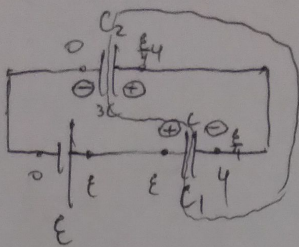 C₂
0
ε/4
⊖
⊕
3C
⊕
C
⊖
ε/4
0
ε
ε
C₁
4
ε